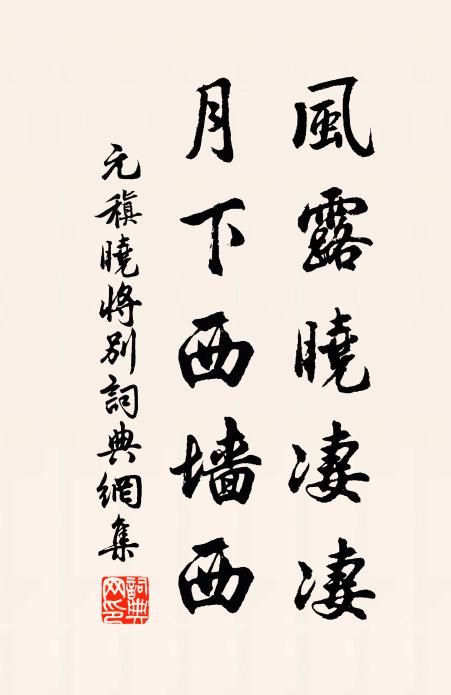 風露曉凄凄
月下西墻西
元稹曉將別詞典網集
詞典網印